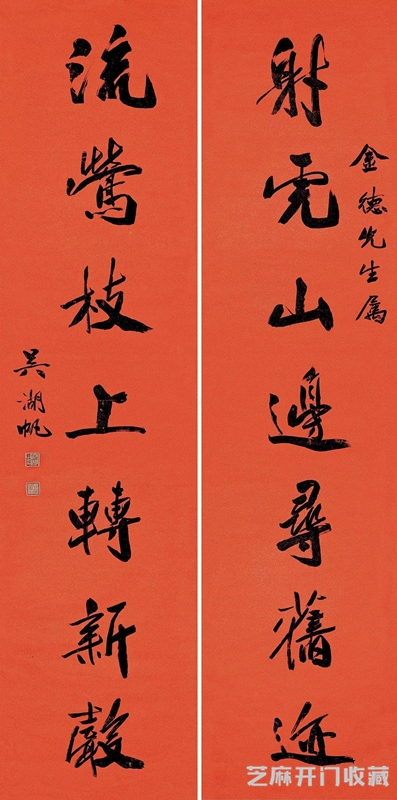 金德先生屬
射虎山邊尋舊迹
流鶯枝上轉新聲
吳湖帆
芝麻开门收藏